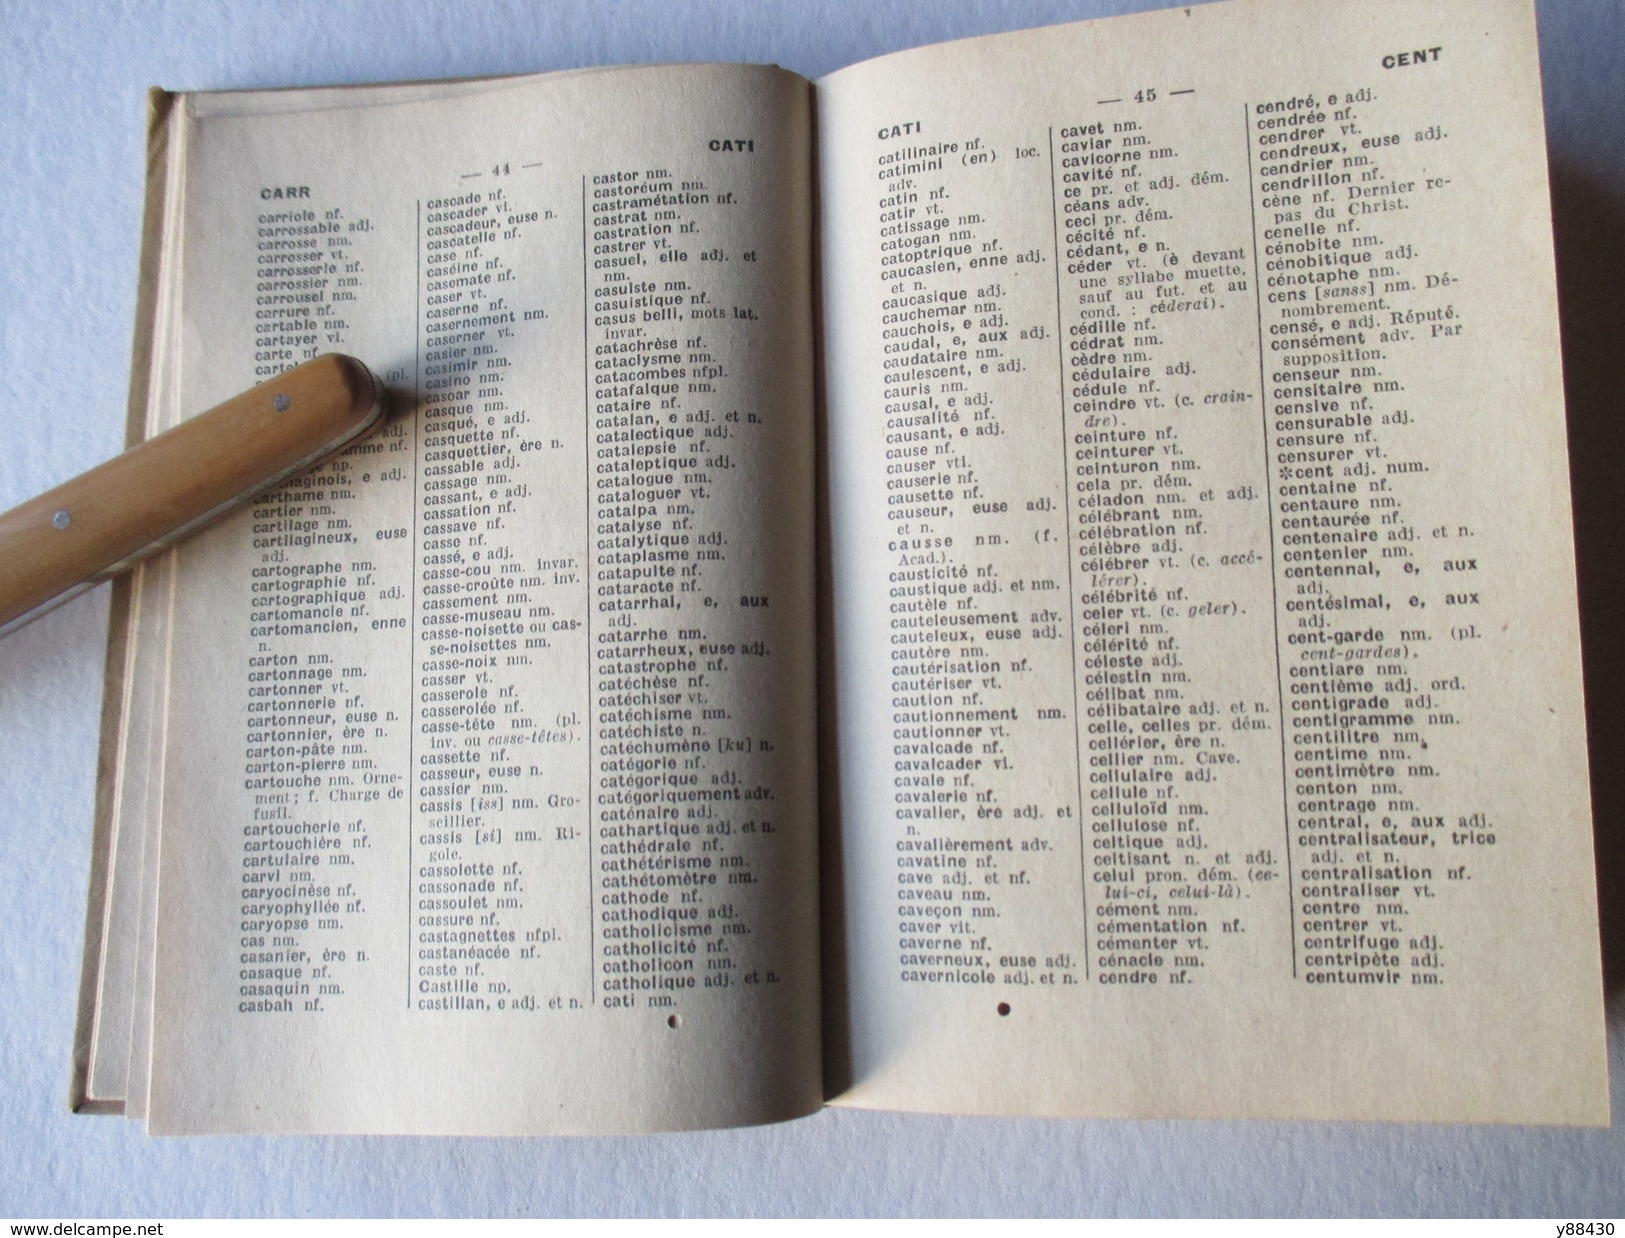 CARR
— 44 —
CATI
carriole nf.
carrossable adj.
carrosse nm.
carrosser vt.
carrosserie nf.
carrossier nm.
carrousel nm.
carrure nf.
cartable nm.
cartayer vi.
carte nf
(pl.
adj.
amme nf.
np.
haginois, e adj.
carthame nm.
cartier nm.
cartilage nm.
cartilagineux, euse
adj.
cartographe nm.
cartographie nf.
cartographique adj.
cartomancie nf.
cartomancien, enne
n.
carton nm.
cartonnage nm.
cartonner vt.
cartonnerie nf.
cartonneur, euse n.
cartonnier, ère n.
carton-pâte nm.
carton-pierre nm.
cartouche nm. Orne-
ment; f. Charge de
fusil.
cartoucherie nf.
cartouchière nf.
cartulaire nm.
carvi nm.
caryocinèse nf.
caryophyllée nf.
caryopse nm.
cas nm.
casanier, ère n.
casaque nf.
casaquin nm.
casbah nf.
cascade nf.
cascader vi.
cascadeur, euse n.
cascatelle nf.
case nf.
caséine nf.
casemate nf.
caser vt.
caserne nf.
casernement nm.
caserner vt.
casier nm.
casimir nm.
casino nm.
casoar nm.
casque nm.
casqué, e adj.
casquette nf.
casquettier, ère n.
cassable adj.
cassage nm.
cassant, e adj.
cassation nf.
cassave nf.
casse nf.
cassé, e adj.
casse-cou nm. invar.
casse-croûte nm. inv.
cassement nm.
casse-museau nm.
casse-noisette ou cas-
se-noisettes nm.
casse-noix nm.
casser vt.
casserole nf.
casserolée nf.
casse-tête nm. (pl.
inv. ou casse-têtes).
cassette nf.
casseur, euse n.
cassier nm.
cassis [iss] nm. Gro-
seillier.
cassis [si] nm. Ri-
gole.
cassolette nf.
cassonade nf.
cassoulet nm.
cassure nf.
castagnettes nfpl.
castanéacée nf.
caste nf.
Castille np.
castillan, e adj. et n.
castor nm.
castoréum nm.
castramétation nf.
castrat nm.
castration nf.
castrer vt.
casuel, elle adj. et
nm.
casuiste nm.
casuistique nf.
casus belli, mots lat.
invar.
catachrèse nf.
cataclysme nm.
catacombes nfpl.
catafalque nm.
cataire nf.
catalan, e adj. et n.
catalectique adj.
catalepsie nf.
cataleptique adj.
catalogue nm.
cataloguer vt.
catalpa nm.
catalyse nf.
catalytique adj.
cataplasme nm.
catapulte nf.
cataracte nf.
catarrhal, e, aux
adj.
catarrhe nm.
catarrheux, euse adj.
catastrophe nf.
catéchèse nf.
catéchiser vt.
catéchisme nm.
catéchiste n.
catéchumène [ku] n.
catégorie nf.
catégorique adj.
catégoriquement adv.
caténaire adj.
cathartique adj. et n.
cathédrale nf.
cathétérisme nm.
cathétomètre nm.
cathode nf.
cathodique adj.
catholicisme nm.
catholicité nf.
catholicon nm.
catholique adj. et n.
cati nm.
CATI
— 45 —
CENT
catilinaire nf.
catimini (en) loc.
adv.
catin nf.
catir vt.
catissage nm.
catogan nm.
catoptrique nf.
caucasien, enne adj.
et n.
caucasique adj.
cauchemar nm.
cauchois, e adj.
caudal, e, aux adj.
caudataire nm.
caulescent, e adj.
cauris nm.
causal, e adj.
causalité nf.
causant, e adj.
cause nf.
causer vti.
causerie nf.
causette nf.
causeur, euse adj.
et n.
causse nm. (f.
Acad.).
causticité nf.
caustique adj. et nm.
cautèle nf.
cauteleusement adv.
cauteleux, euse adj.
cautère nm.
cautérisation nf.
cautériser vt.
caution nf.
cautionnement nm.
cautionner vt.
cavalcade nf.
cavalcader vi.
cavale nf.
cavalerie nf.
cavalier, ère adj. et
n.
cavalièrement adv.
cavatine nf.
cave adj. et nf.
caveau nm.
caveçon nm.
caver vit.
caverne nf.
caverneux, euse adj.
cavernicole adj. et n.
cavet nm.
caviar nm.
cavicorne nm.
cavité nf.
ce pr. et adj. dém.
céans adv.
ceci pr. dém.
cécité nf.
cédant, e n.
céder vt. (è devant
une syllabe muette,
sauf au fut. et au
cond. : céderai).
cédille nf.
cédrat nm.
cèdre nm.
cédulaire adj.
cédule nf.
ceindre vt. (c. crain-
dre).
ceinture nf.
ceinturer vt.
ceinturon nm.
cela pr. dém.
céladon nm. et adj.
célébrant nm.
célébration nf.
célèbre adj.
célébrer vt. (c. accé-
lérer).
célébrité nf.
celer vt. (c. geler).
céleri nm.
célérité nf.
céleste adj.
célestin nm.
célibat nm.
célibataire adj. et n.
celle, celles pr. dém.
cellérier, ère n.
cellier nm. Cave.
cellulaire adj.
cellule nf.
celluloïd nm.
cellulose nf.
celtique adj.
celtisant n. et adj.
celui pron. dém. (ce-
lui-ci, celui-là).
cément nm.
cémentation nf.
cémenter vt.
cénacle nm.
cendre nf.
cendré, e adj.
cendrée nf.
cendrer vt.
cendreux, euse adj.
cendrier nm.
cendrillon nf.
cène nf. Dernier re-
pas du Christ.
cenelle nf.
cénobite nm.
cénobitique adj.
cénotaphe nm.
cens [sanss] nm. Dé-
nombrement.
censé, e adj. Réputé.
censément adv. Par
supposition.
censeur nm.
censitaire nm.
censive nf.
censurable adj.
censure nf.
censurer vt.
✻cent adj. num.
centaine nf.
centaure nm.
centaurée nf.
centenaire adj. et n.
centenier nm.
centennal, e, aux
adj.
centésimal, e, aux
adj.
cent-garde nm. (pl.
cent-gardes).
centiare nm.
centième adj. ord.
centigrade adj.
centigramme nm.
centilitre nm.
centime nm.
centimètre nm.
centon nm.
centrage nm.
central, e, aux adj.
centralisateur, trice
adj. et n.
centralisation nf.
centraliser vt.
centre nm.
centrer vt.
centrifuge adj.
centripète adj.
centumvir nm.
www.delcampe.net
y88430